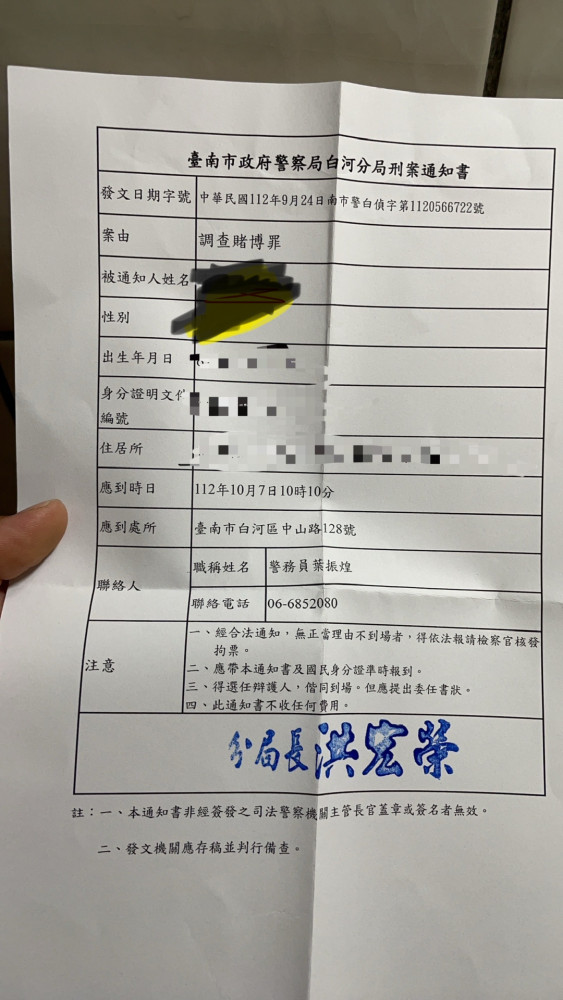 臺南市政府警察局白河分局刑案通知書
發文日期字號 中華民國112年9月24日南市警白偵字第1120566722號
案由 調查賭博罪
被通知人姓名
性別
出生年月日
身分證明文件
編號
住居所
應到時日 112年10月7日10時10分
應到處所 臺南市白河區中山路128號
聯絡人
職稱姓名 警務員葉振煌
聯絡電話 06-6852080
注意
一、經合法通知，無正當理由不到場者，得依法報請檢察官核發
拘票。
二、應帶本通知書及國民身分證準時報到。
三、得選任辯護人，偕同到場。但應提出委任書狀。
四、此通知書不收任何費用。
分局長洪宏榮
註：一、本通知書非經簽發之司法警察機關主管長官蓋章或簽名者無效。
二、發文機關應存稿並判行備查。